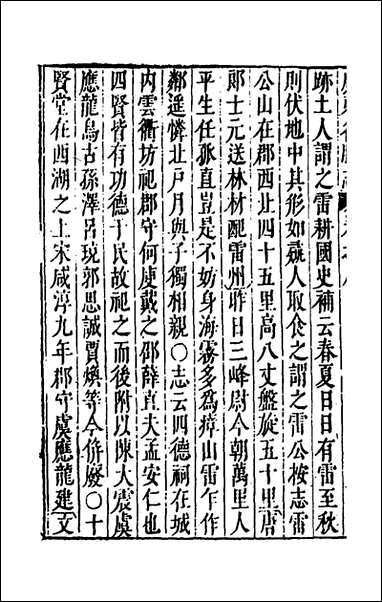 跡土人謂之雷耕國史補云春夏日日有雷至秋
則伏地中其形如彘人取食之謂之雷公按志雷
公山在郡西北四十五里高八丈盤旋五十里唐
郎士元送林材配雷州昨日三峰尉今朝萬里人
平生任孤直豈是不妨身海霧多為瘴山雷乍作
鄰遥憐北戸月與子獨相親○志云四德祠在城
内雲衢坊祀郡守何庾戴之邵薛直夫孟安仁也
四賢皆有功德于民故祀之而後附以陳大震虞
應龍烏古孫澤吕琓郭思誠賈煥等今併廢○十
賢堂在西湖之上宋咸淳九年郡守虞應龍建文